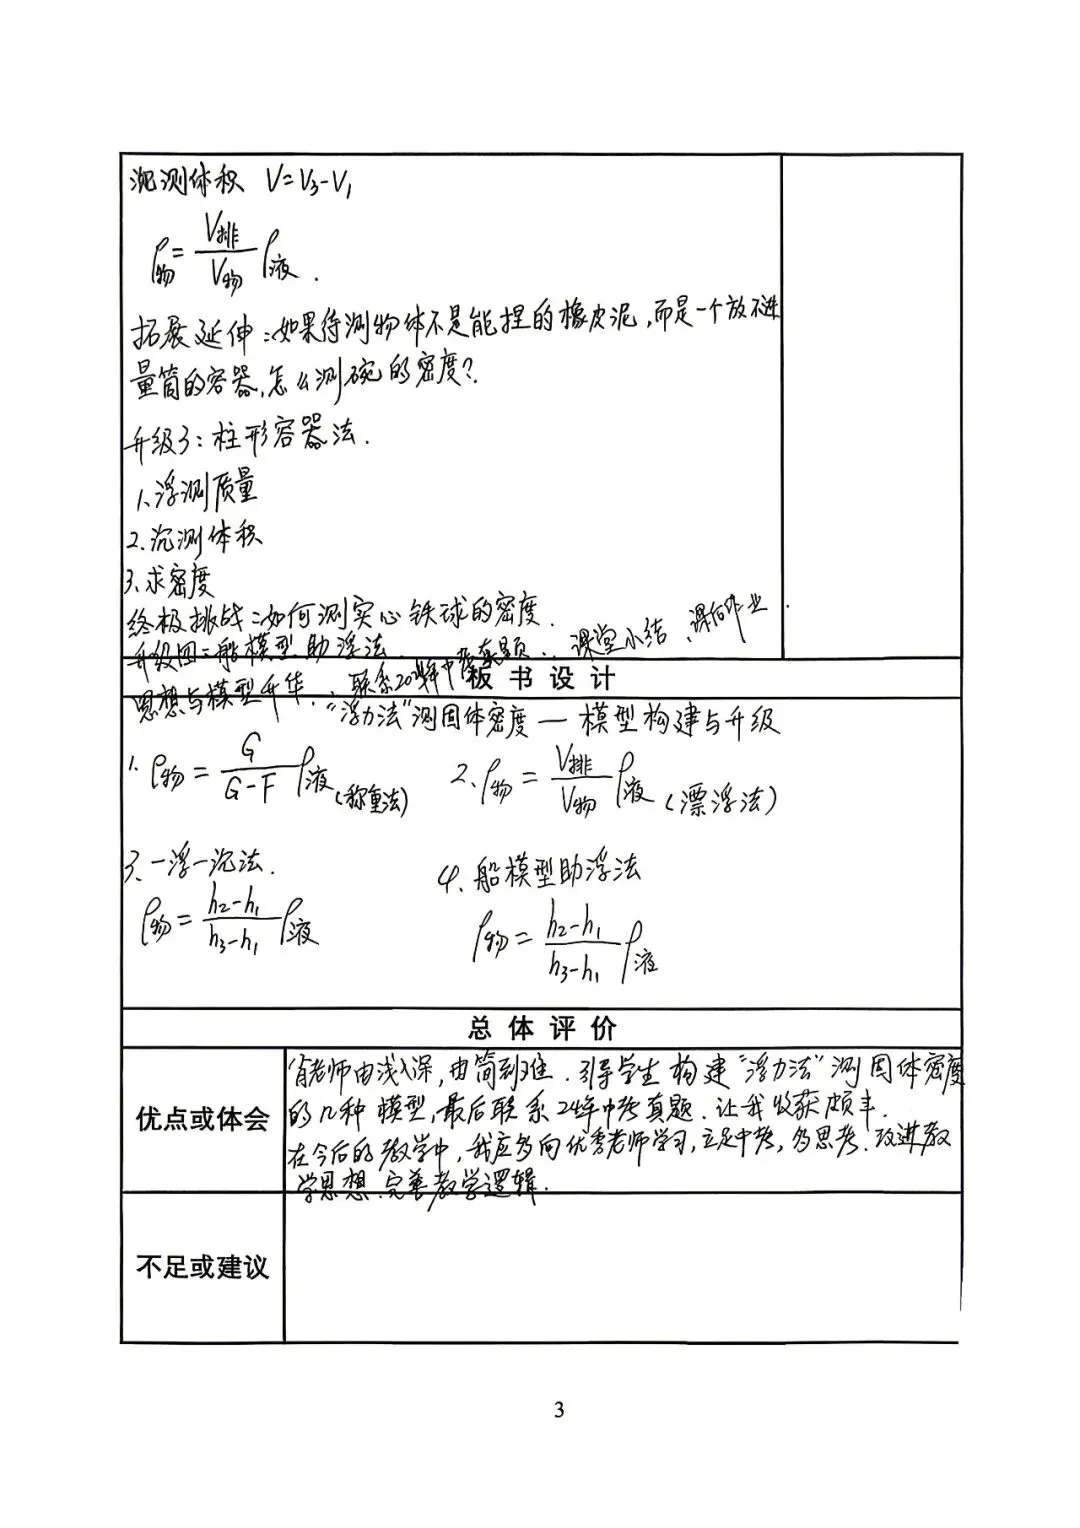 沉测体积 V=V₃-V₁
ρ物=V排/V物 ρ液.
拓展延伸:如果待测物体不是能捏的橡皮泥,而是一个放不进
量筒的容器,怎么测碗的密度?
升级3:柱形容器法.
1、浮测质量
2.沉测体积
3.求密度
终极挑战:如何测实心铁球的密度.
升级四:船模型助浮法. 课堂小结、课后作业.
思想与模型升华、联系2024年中考真题.
板书设计
“浮力法”测固体密度—模型构建与升级
1. ρ物=G/G-F ρ液(称重法) 2、ρ物=V排/V物 ρ液(漂浮法)
3、一浮一沉法. 4、船模型助浮法
ρ物=h₂-h₁/h₃-h₁ ρ液 ρ物=h₂-h₁/h₃-h₁ ρ液
总体评价
优点或体会
肖老师由浅入深,由简到难.引导学生构建“浮力法”测固体密度
的几种模型,最后联系24年中考真题.让我收获颇丰.
在今后的教学中,我应多向优秀老师学习,立足中考,多思考.改进教
学思想.完善教学逻辑.
不足或建议
3